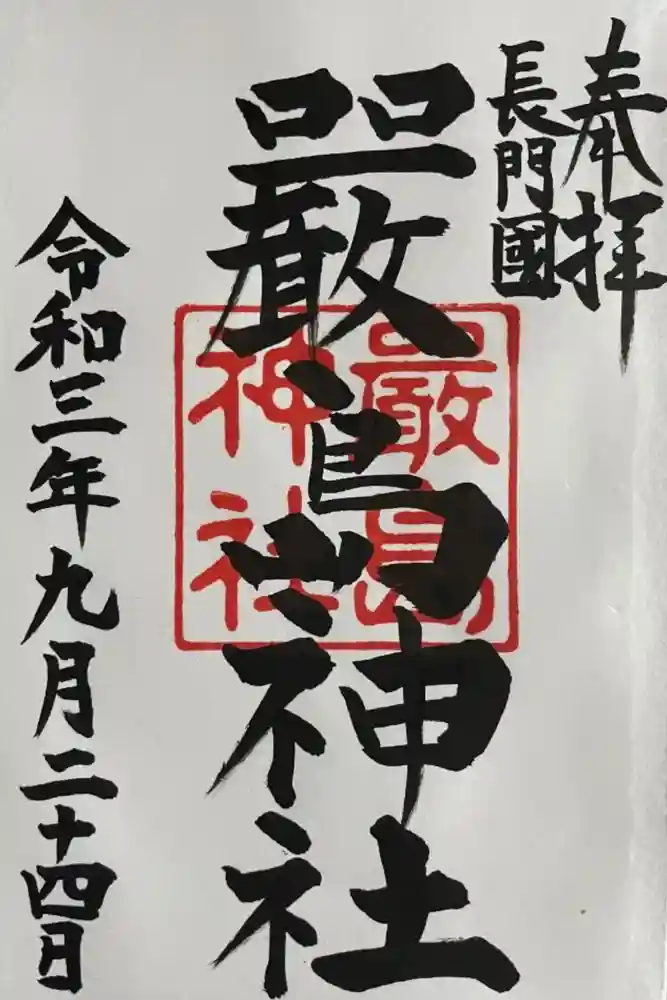 奉拝
長門國
嚴島神社
厳島
神社
令和三年九月二十四日